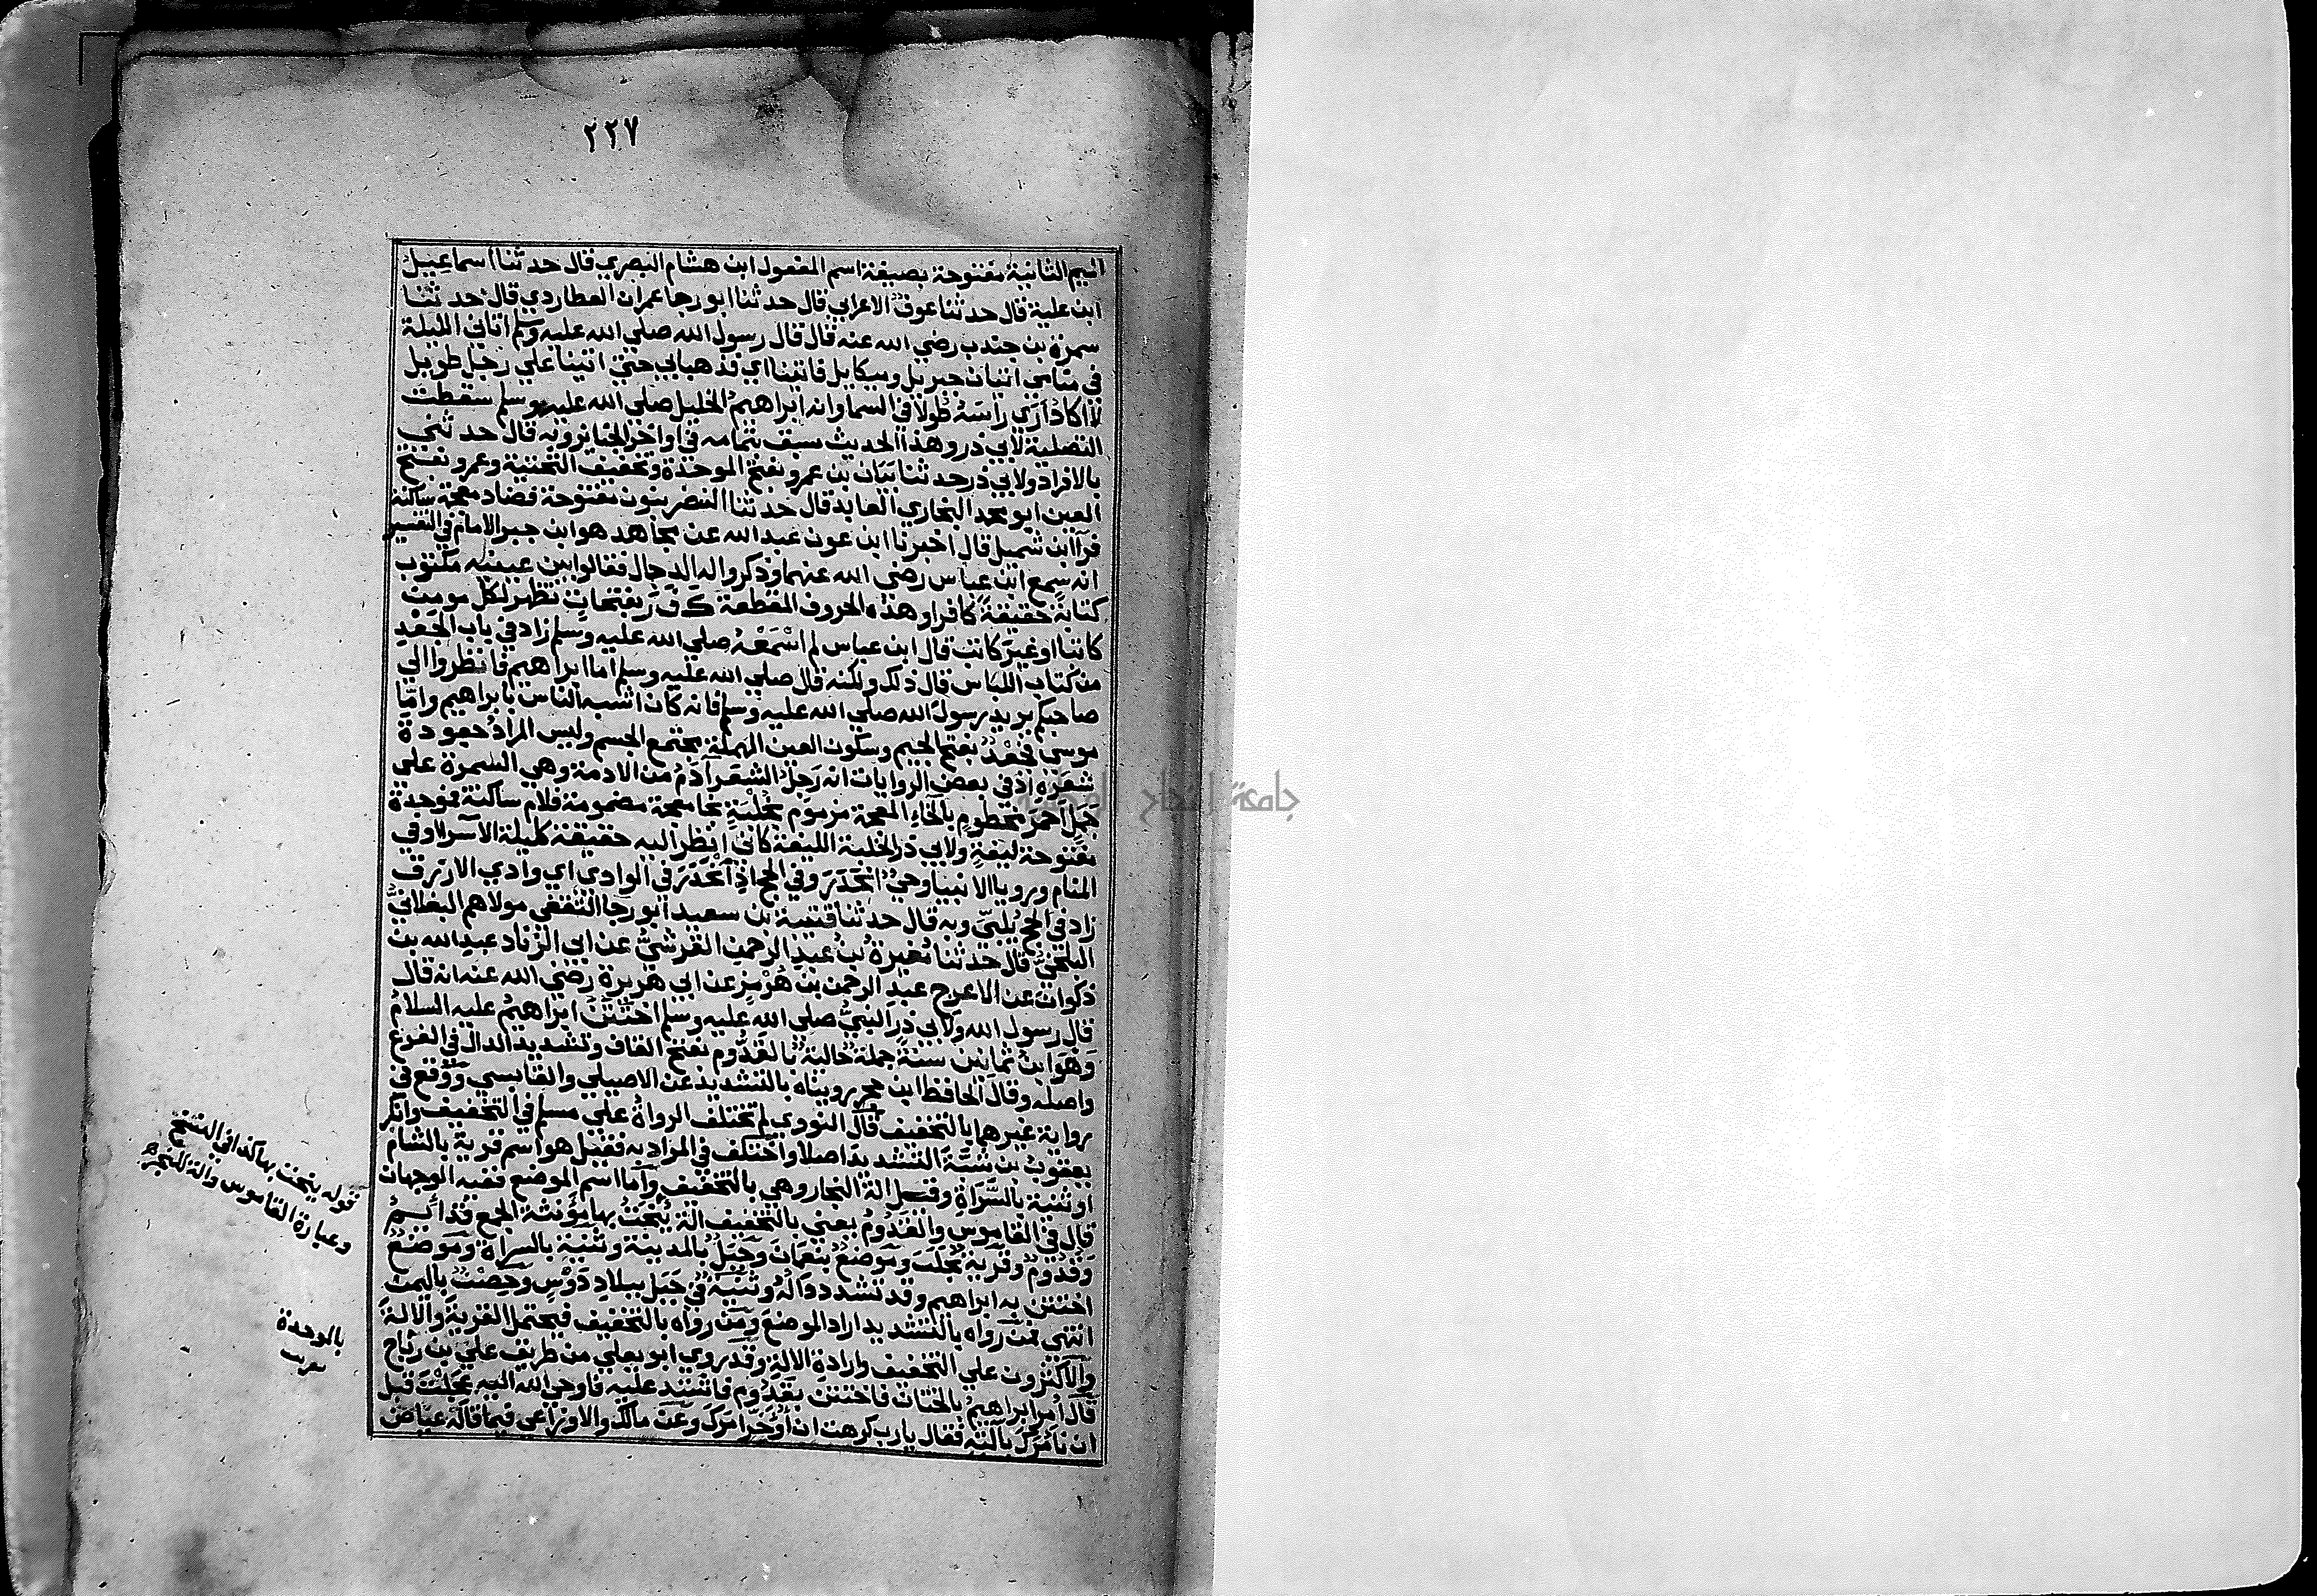 ٢٢٧
الميم الثانية مفتوحة بصيغة اسم المفعول ابن هشام البصري قال حدثنا اسماعيل
ابن علية قال حدثنا عوف الاعرابي قال حدثنا ابو رجا عمران العطاردي قال حدثنا
سمرة بن جندب رضي الله عنه قال قال رسول الله صلي الله عليه وسلم اتاني الليلة
في منامي اتيان جبريل وميكايل فاتينا اي فذهبا بي حتي اتينا علي رجل طويل
لا اكاد اري راسه طولا في السما وانه ابراهيم الخليل صلي الله عليه وسلم سقطت
التصلية لابي ذر وهذا الحديث سبق بتمامه في اواخر الجنايز وبه قال حدثني
بالافراد ولابي ذر حدثنا بيان بن عمرو بفتح الموحدة وتخفيف التحتية وعمرو بفتح
العين ابو محمد البخاري العابد قال حدثنا النضر بنون مفتوحة فضاد معجمة ساكنة
فرا ابن شميل قال اخبرنا ابن عون عبد الله عن مجاهد هو ابن جبر الامام في التفسير
انه سمع ابن عباس رضي الله عنهما وذكروا له الدجال فقالوا بين عينيه مكتوب
كتابة حقيقة كافر او هذه الحروف المقطعة ك ف ر بفتحات تظهر لكل مومن
كاتبا او غير كاتب قال ابن عباس لم اسمعه صلي الله عليه وسلم زاد في باب الجعد
من كتاب اللباس قال ذلك ولكنه قال صلي الله عليه وسلم اما ابراهيم فانظروا الي
صاحبكم يريد رسول الله صلي الله عليه وسلم فانه كان اشبه الناس بابراهيم واما
موسي فجعد بفتح الجيم وسكون العين المهملة مجتمع الجسم وليس المراد جعودة
شعره اذ في بعض الروايات انه رجل الشعر آدم من الادمة وهي السمرة علي
جمل احمر مخطوم بالخاء المعجمة مزموم بخلبة بخا معجمة مضمومة فلام ساكنة فموحدة
مفتوحة ليفة ولابي ذر الخلبة الليفة كاني انظر اليه حقيقة كليلة الاسرا او في
المنام ورويا الانبيا وحي انحدر وفي الحج اذ انحدر في الوادي اي وادي الازرق
زاد في الحج يلبي وبه قال حدثنا قتيبة بن سعيد ابو رجا الثقفي مولاهم البغلاني
البلخي قال حدثنا مغيرة بن عبد الرحمن القرشي عن ابي الزناد عبد الله بن
ذكوان عن الاعرج عبد الرحمن بن هرمز عن ابي هريرة رضي الله عنه انه قال
قال رسول الله ولابي ذر النبي صلي الله عليه وسلم اختتن ابراهيم عليه السلام
وهو ابن ثمانين سنة جملة حالية بالقدوم بفتح القاف وتشديد الدال في الفرع
واصله وقال الحافظ ابن حجر رويناه بالتشديد عن الاصيلي والقابسي ووقع في
رواية غيرهما بالتخفيف قال النووي لم تختلف الرواة علي مسلم في التخفيف وانكر
يعقوب بن شيبة التشديد اصلا واختلف في المراد به فقيل هو اسم قرية بالشام
او ثنية بالسراة وقيل الة النجار وهي بالتخفيف واما اسم الموضع ففيه الوجهان
قال في القاموس والقدوم يعني بالتخفيف الة ينحت بها مؤنثة الجمع قدائم
وقدوم وقرية بحلب وموضع بنعمان وجبل بالمدينة وثنية بالسراة وموضع
اختتن به ابراهيم وقد تشدد داله وثنية في جبل ببلاد دوس وحصن باليمن
انتهي فمن رواه بالتشديد اراد الموضع ومن رواه بالتخفيف فيحتمل القرية والالة
والاكثرون علي التخفيف وارادة الالة وقد روي ابو يعلي من طريق علي بن رباح
قال امر ابراهيم بالختان فاختتن بقدوم فاشتد عليه فاوحي الله اليه عجلت قبل
ان نامرك بآلته فقال يا رب كرهت ان اؤخر امرك وعن مالك والاوزاعي فيما قاله عياض
قوله ينحت بها كذا في النسخ
وعبارة القاموس والة للنجر
بالوحدة
جامعة النجاح